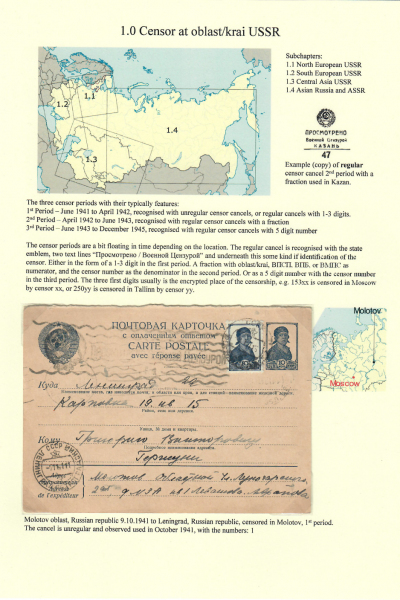 1.0 Censor at oblast/krai USSR
Subchapters:
1.1 North European USSR
1.2 South European USSR
1.3 Central Asia USSR
1.4 Asian Russia and ASSR
1.1
1.2
1.3
1.4
ПРОСМОТРЕНО
Военной Цензурой
КАЗАНЬ
47
Example (copy) of regular
censor cancel 2nd period with a
fraction used in Kazan.
The three censor periods with their typically features:
1st Period – June 1941 to April 1942, recognised with unregular censor cancels, or regular cancels with 1-3 digits.
2nd Period – April 1942 to June 1943, recognised with regular censor cancels with a fraction
3rd Period – June 1943 to December 1945, recognised with regular censor cancels with 5 digit number
The censor periods are a bit floating in time depending on the location. The regular cancel is recognised with the state
emblem, two text lines "Просмотрено / Военной Цензурой" and underneath this some kind of identification of the
censor. Either in the form of a 1-3 digit in the first period. A fraction with oblast/krai, ВПСП, ВПБ, or ВМПС as
numerator, and the censor number as the denominator in the second period. Or as a 5 digit number with the censor number
in the third period. The three first digits usually is the encrypted place of the censorship, e.g. 153xx is censored in Moscow
by censor xx, or 250yy is censored in Tallinn by censor yy.
Molotov
Moscow
ПОЧТОВАЯ КАРТОЧКА
с оплаченным ответом
CARTE POSTALE
avec réponse payée
Куда Ленинград
Карповка 19 кв 15
Кому Григорию Викторовичу
Гершуни
Молотов
Molotov oblast, Russian republic 9.10.1941 to Leningrad, Russian republic, censored in Molotov, 1st period.
The cancel is unregular and observed used in October 1941, with the numbers: 1